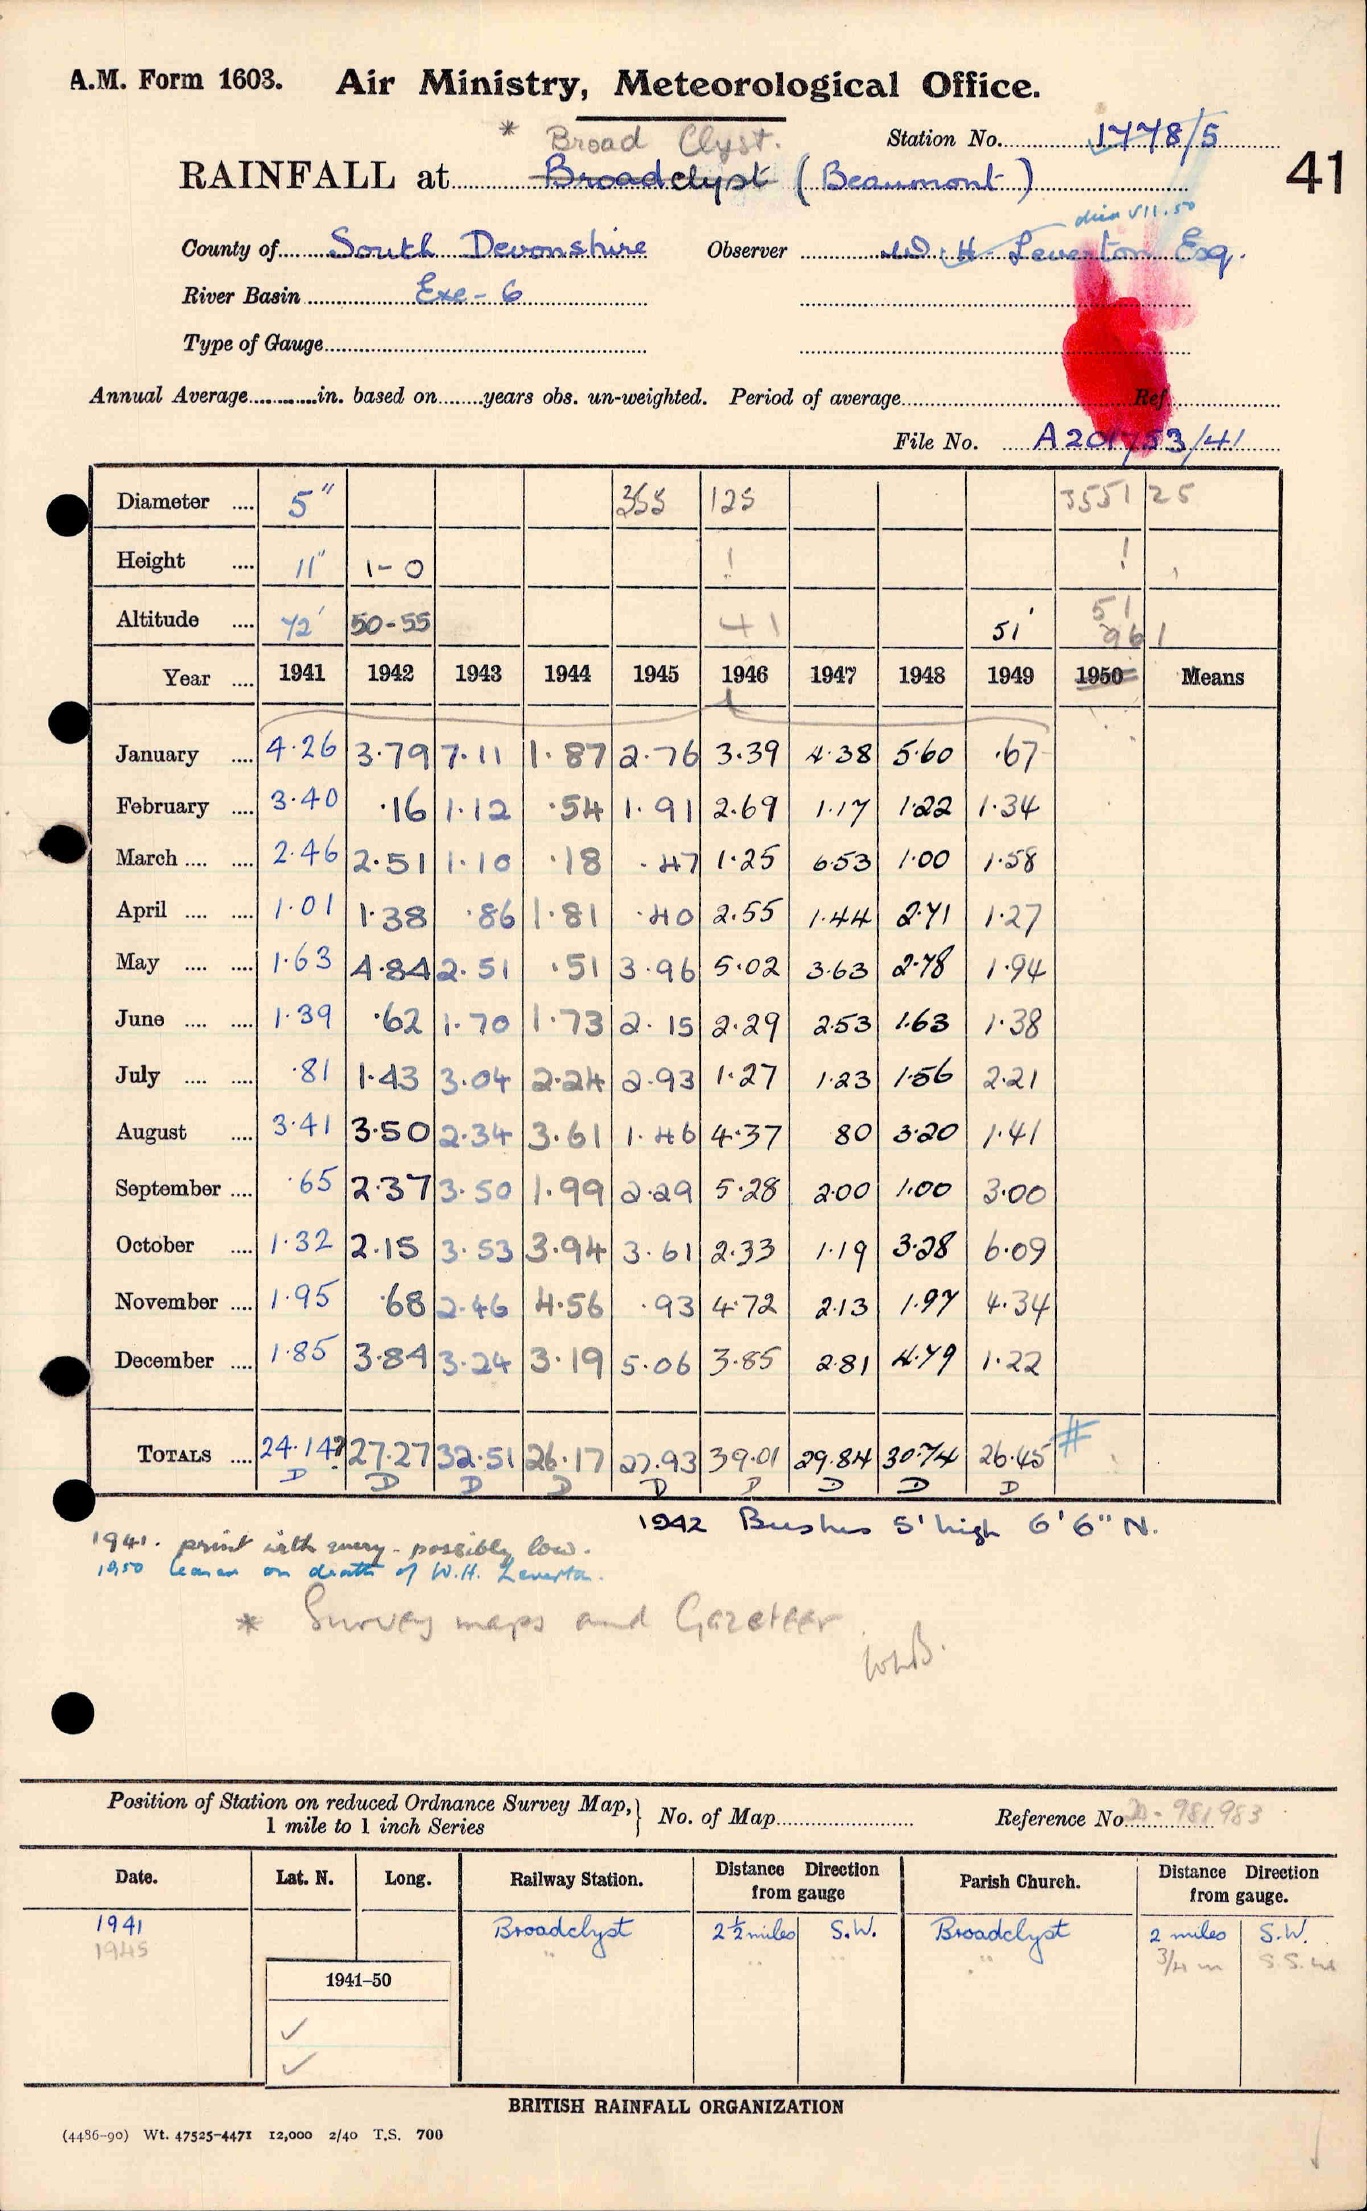 A.M. Form 1603. Air Ministry, Meteorological Office.
* Broad Clyst. Station No. 1778/5
41
RAINFALL at Broadclyst (Beaumont)
died VII.50
County of South Devonshire Observer W. H. Leverton Esq.
River Basin Exe - 6
Type of Gauge
Annual Average in. based on years obs. un-weighted. Period of average Ref
File No. A201753/41
Diameter 5" 355 125 3551 25
Height 11" 1-0 ! !
Altitude 72' 50-55 41 51' 51
961
Year 1941 1942 1943 1944 1945 1946 1947 1948 1949 1950 Means
January 4.26 3.79 7.11 1.87 2.76 3.39 4.38 5.60 .67
February 3.40 .16 1.12 .54 1.91 2.69 1.17 1.22 1.34
March 2.46 2.51 1.10 .18 .47 1.25 6.53 1.00 1.58
April 1.01 1.38 .86 1.81 .40 2.55 1.44 2.71 1.27
May 1.63 4.84 2.51 .51 3.96 5.02 3.63 2.78 1.94
June 1.39 .62 1.70 1.73 2.15 2.29 2.53 1.63 1.38
July .81 1.43 3.04 2.24 2.93 1.27 1.23 1.56 2.21
August 3.41 3.50 2.34 3.61 1.46 4.37 80 3.20 1.41
September .65 2.37 3.50 1.99 2.29 5.28 2.00 1.00 3.00
October 1.32 2.15 3.53 3.94 3.61 2.33 1.19 3.28 6.09
November 1.95 .68 2.46 4.56 .93 4.72 2.13 1.97 4.34
December 1.85 3.84 3.24 3.19 5.06 3.85 2.81 4.79 1.22
TOTALS 24.14? 27.27 32.51 26.17 27.93 39.01 29.84 30.74 26.45 #
D D D D D D D D D
1942 Bushes 5' high 6'6" N.
1941. print with query - possibly low.
1950 ceased on death of W.H. Leverton.
* Survey maps and Gazeteer
WLB.
Position of Station on reduced Ordnance Survey Map, 1 mile to 1 inch Series } No. of Map Reference No. 20-981983
Date. Lat. N. Long. Railway Station. Distance Direction from gauge Parish Church. Distance Direction from gauge.
1941 Broadclyst 2½ miles S.W. Broadclyst 2 miles S.W.
1945 " " " " 3/4 m S.S.W
1941-50
✓
✓
BRITISH RAINFALL ORGANIZATION
(4486-90) Wt. 47525-4471 12,000 2/40 T.S. 700